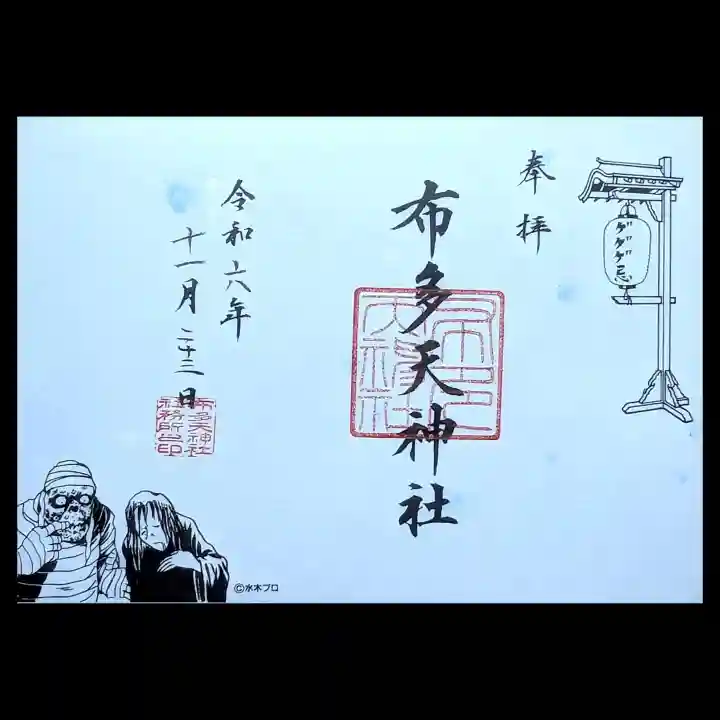 奉拝
ゲゲゲ忌
布多天神社
令和六年
十一月二十三日
布多天神社
社務所之印
©水木プロ